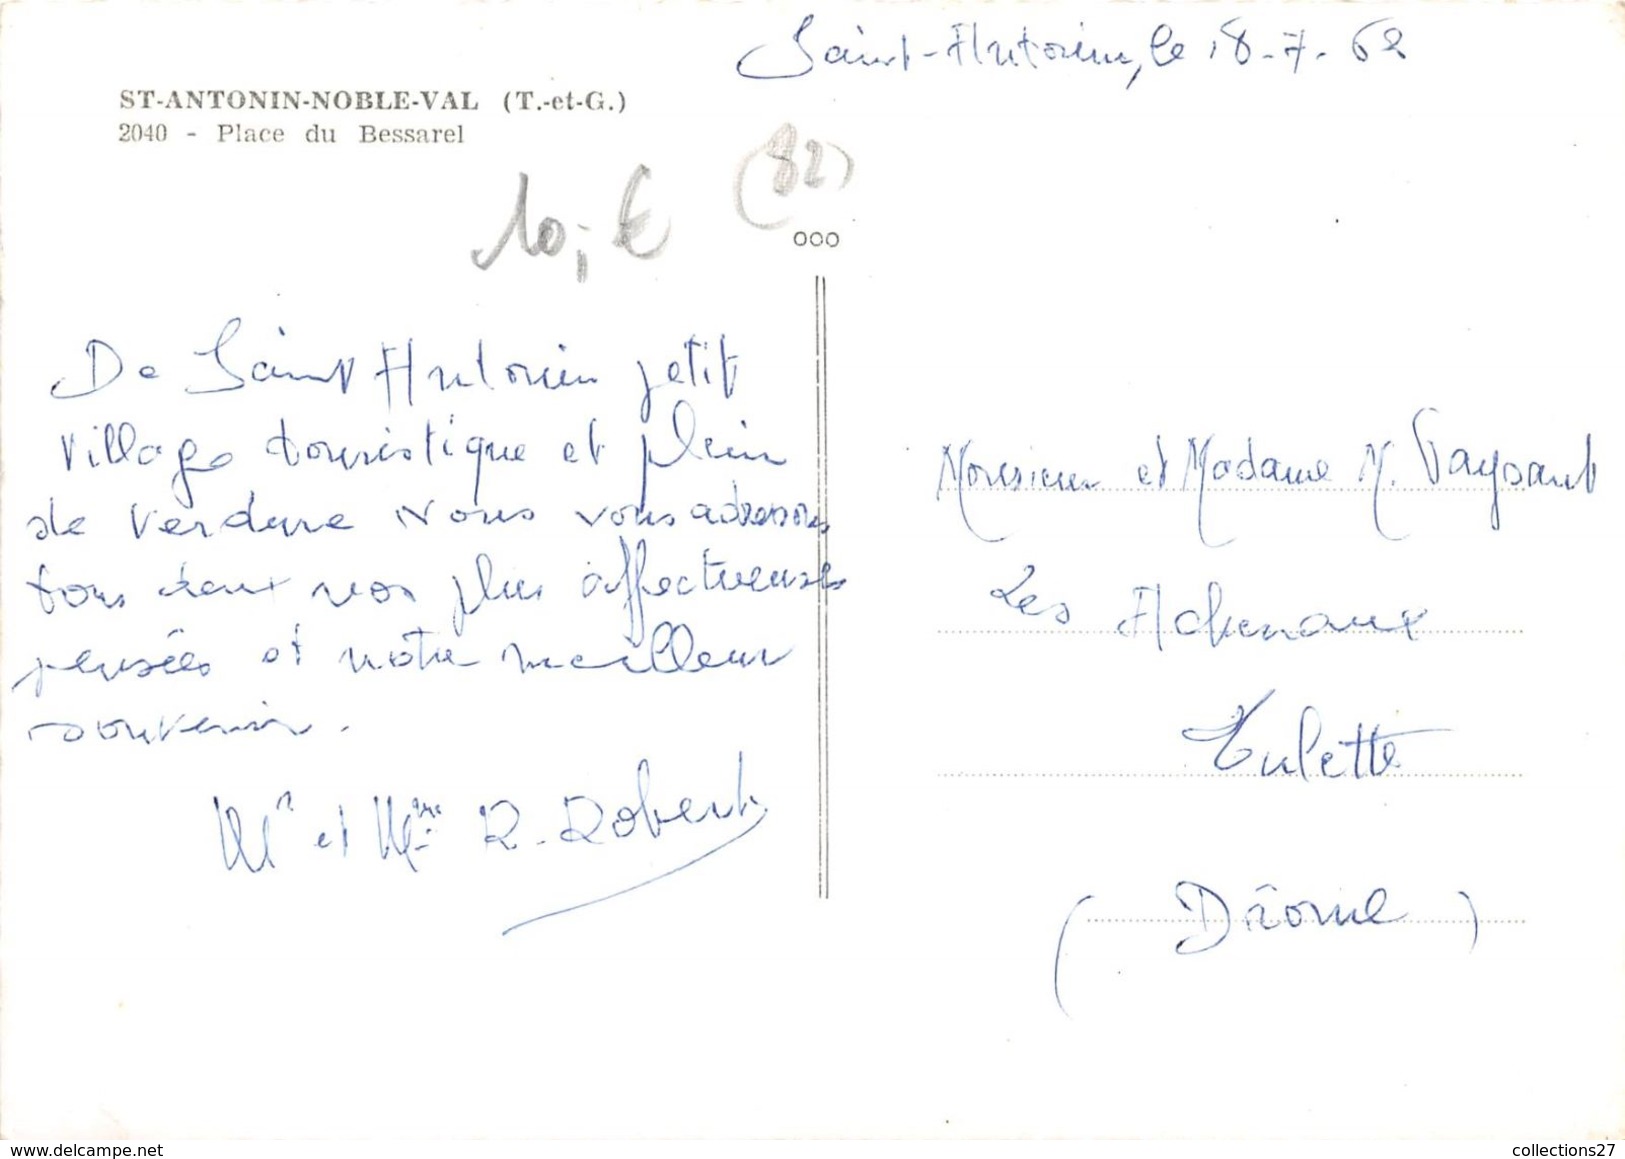 Saint-Antonin, le 18-7-62
ST-ANTONIN-NOBLE-VAL (T.-et-G.)
2040 - Place du Bessarel
(82)
10,- €
De Saint Antonin petit
village touristique et plein
de verdure nous vous adressons
tous deux nos plus affectueuses
pensées et notre meilleur
souvenir.
Mr et Mme R. Robert
Monsieur et Madame M. Paysant
Les
Tulette
(Drôme)
collections27